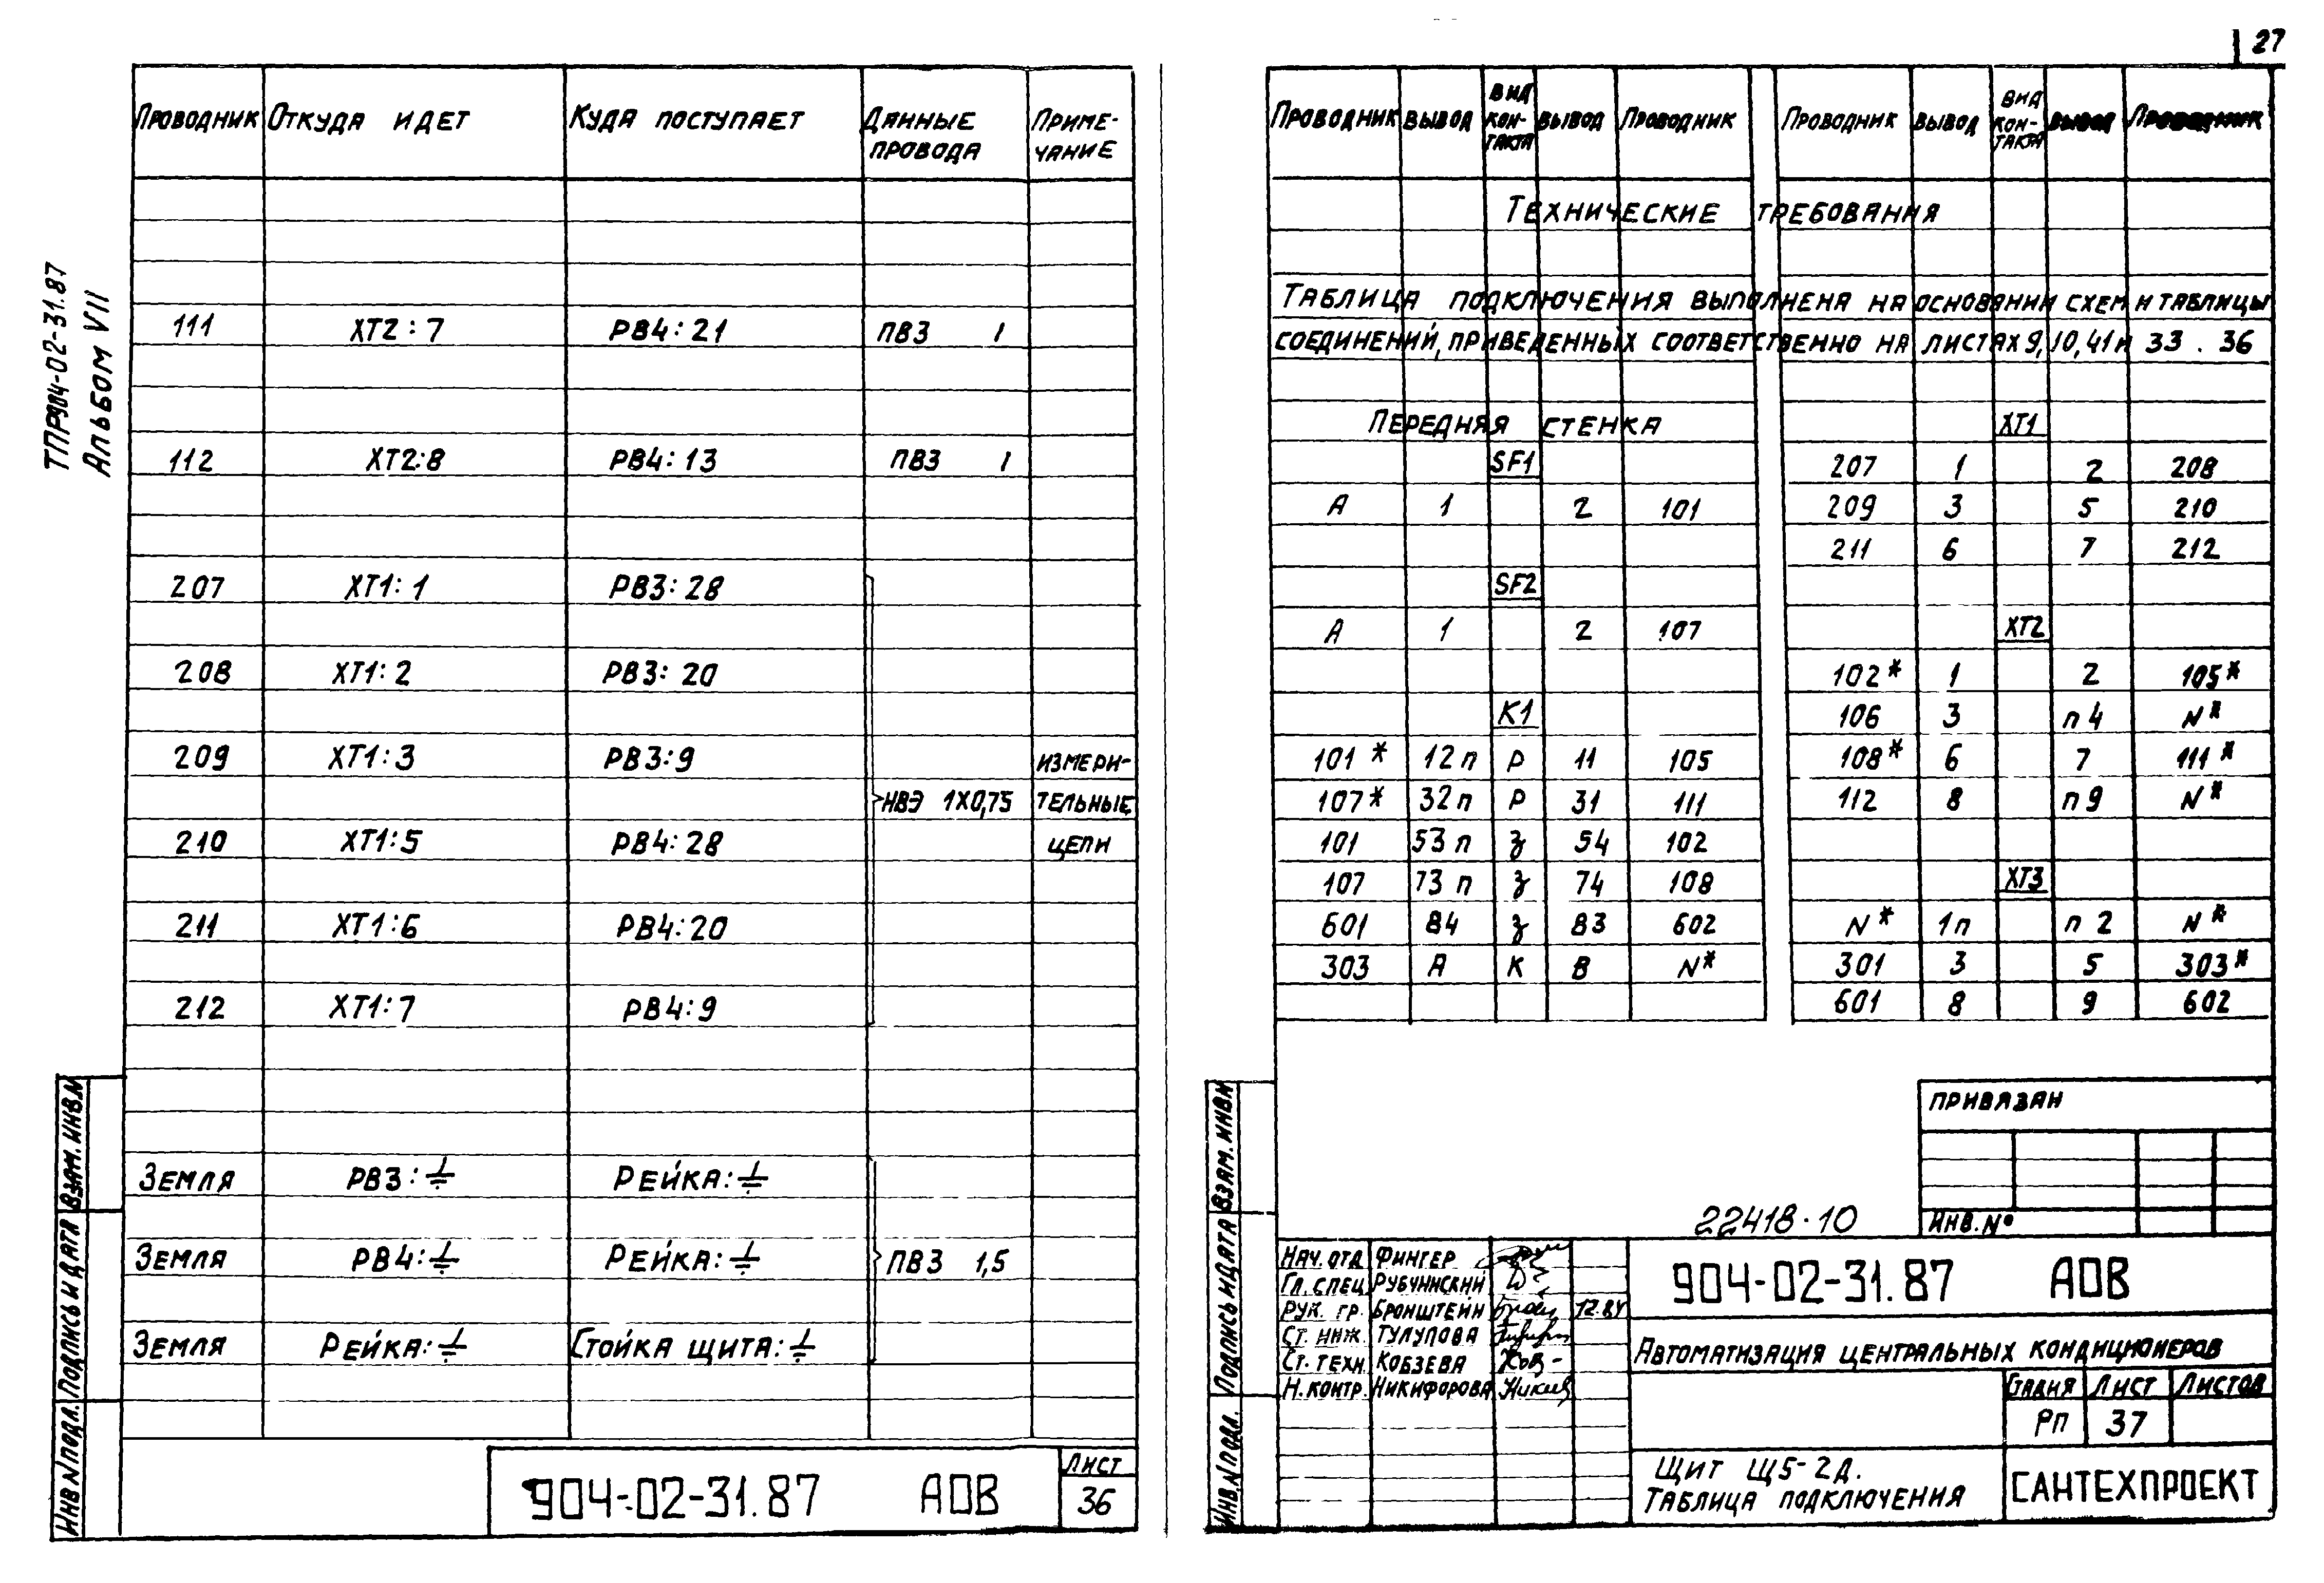 27
ТПР904-02-31.87
Альбом VII
Проводник Откуда идет Куда поступает Данные провода Примечание
111 ХТ2:7 РВ4:21 ПВ3 1
112 ХТ2:8 РВ4:13 ПВ3 1
207 ХТ1:1 РВ3:28
208 ХТ1:2 РВ3:20
209 ХТ1:3 РВ3:9 измери-
НВЭ 1х0,75 тельные
210 ХТ1:5 РВ4:28 цепи
211 ХТ1:6 РВ4:20
212 ХТ1:7 РВ4:9
Земля РВ3:⏚ Рейка:⏚
Земля РВ4:⏚ Рейка:⏚ ПВ3 1,5
Земля Рейка:⏚ Стойка щита:⏚
904-02-31.87 АОВ
Лист
36
Инв.N подл. Подпись и дата Взам. инв.N
Проводник Вывод Вид кон-такта Вывод Проводник Проводник Вывод Вид кон-такта Вывод Проводник
Технические требования
Таблица подключения выполнена на основании схем и таблицы
соединений, приведенных соответственно на листах 9, 10, 41 и 33 . 36
Передняя стенка
SF1
А 1 2 101
SF2
А 1 2 107
К1
101* 12 п Р 11 105
107* 32 п Р 31 111
101 53 п з 54 102
107 73 п з 74 108
601 84 з 83 602
303 А К В N*
ХТ1
207 1 2 208
209 3 5 210
211 6 7 212
ХТ2
102* 1 2 105*
106 3 п 4 N*
108* 6 7 111*
112 8 п 9 N*
ХТ3
N* 1п п 2 N*
301 3 5 303*
601 8 9 602
Привязан
Инв. №
22418-10
Инв.N подл. Подпись и дата Взам. инв.N
Нач. отд. Фингер
Гл. спец. Рубчинский
Рук. гр. Бронштейн
Ст. инж. Тулупова
Ст. техн. Кобзева
Н. контр. Никифорова
904-02-31.87 АОВ
Автоматизация центральных кондиционеров
Стадия Лист Листов
РП 37
Щит Щ5-2Д.
Таблица подключения
САНТЕХПРОЕКТ